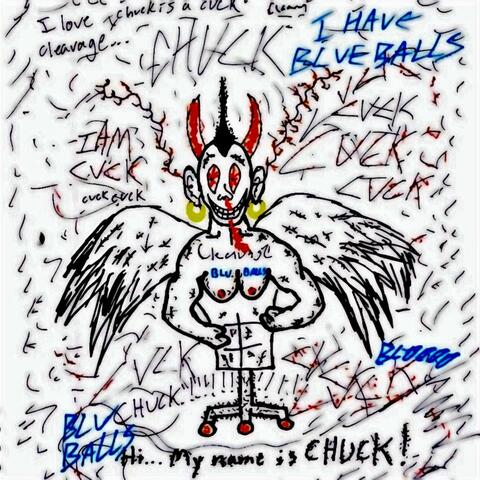 I love Chuck is a cuck
cleavage...
CHUCK
I HAVE
BLUE BALLS
I AM
CVCK
cuck cuck
CVCK
CVCK
CVCK
Cleavage
BLU BALLS
CHUCK!!!!!!!!!!!!
BLU
BALLS
Hi... My name is CHUCK!